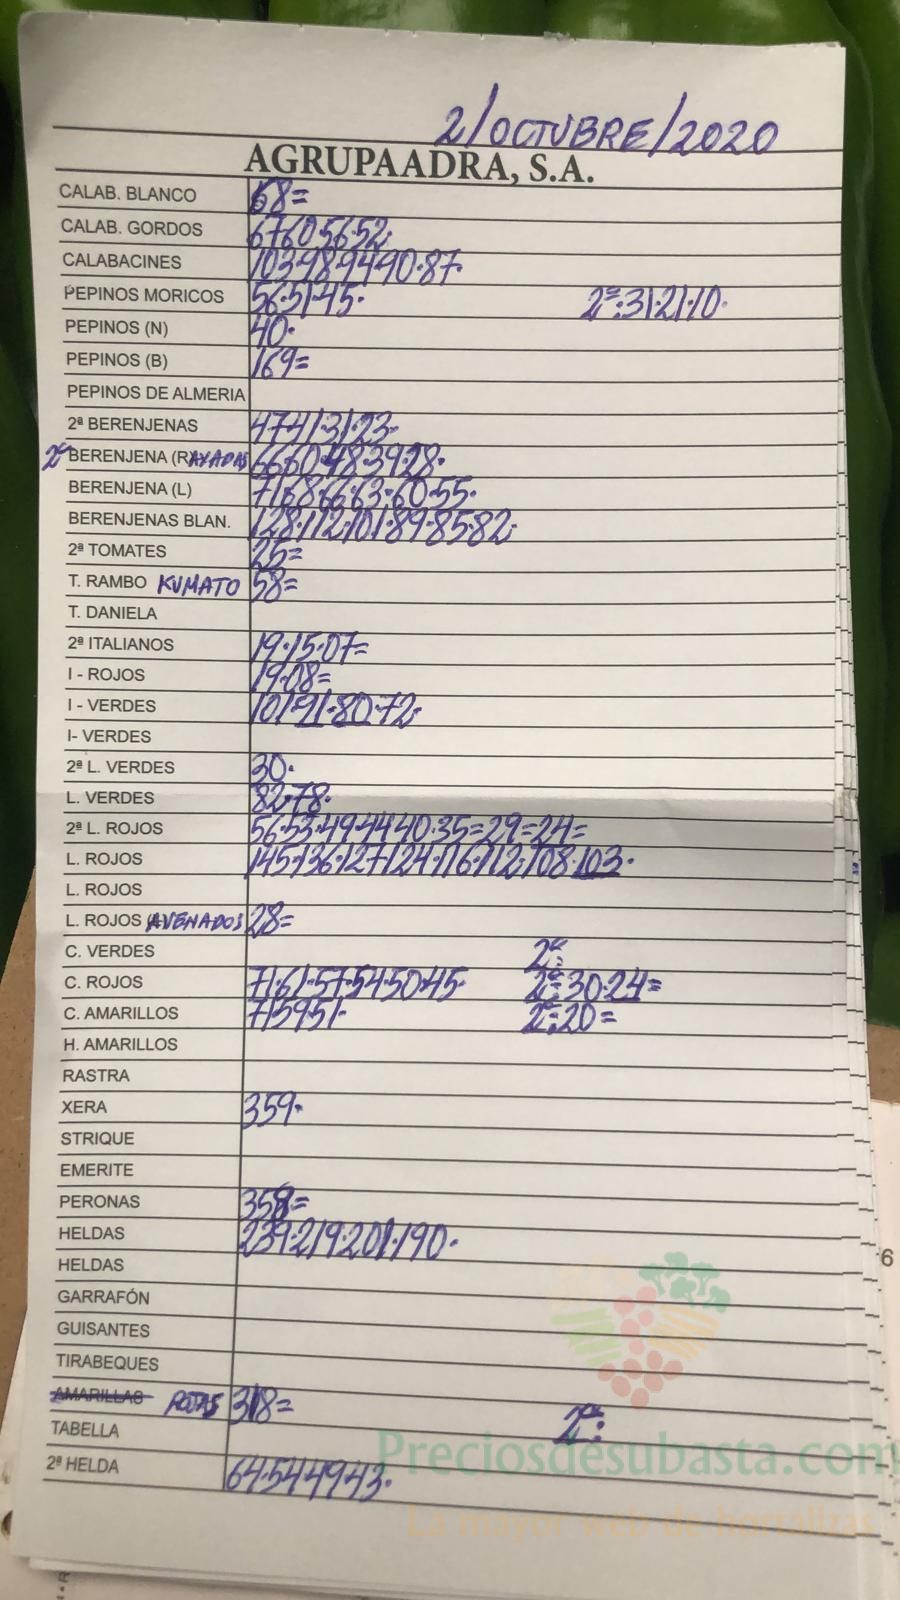 2/OCTUBRE/2020
AGRUPAADRA, S.A.
CALAB. BLANCO 68=
CALAB. GORDOS 67 60·56·52·
CALABACINES 103·98·94·90·87·
PEPINOS MORICOS 56·51·45· 2ª:31·21·10·
PEPINOS (N) 40·
PEPINOS (B) 169=
PEPINOS DE ALMERIA
2ª BERENJENAS 47·41·31·23·
2ª BERENJENA (RAYADAS 66·60·48·39·28·
BERENJENA (L) 71·68·66·63·60·55·
BERENJENAS BLAN. 128·112·101·89·85·82·
2ª TOMATES 25=
T. RAMBO KUMATO 58=
T. DANIELA
2ª ITALIANOS 19·15·07=
I - ROJOS 19·08=
I - VERDES 101·91·80·72·
I- VERDES
2ª L. VERDES 30·
L. VERDES 82·78·
2ª L. ROJOS 56·53·49·44·40·35=29=24=
L. ROJOS 145·136·127·124·116·112·108·103·
L. ROJOS
L. ROJOS AVENADOS 28=
C. VERDES 2ª:
C. ROJOS 71·61·57·54·50·45· 2ª:30·24=
C. AMARILLOS 71·59·51· 2ª:20=
H. AMARILLOS
RASTRA
XERA 359·
STRIQUE
EMERITE
PERONAS 358=
HELDAS 239·219·201·190·
HELDAS
GARRAFÓN
GUISANTES
TIRABEQUES
AMARILLAS ROJAS 318=
TABELLA 2ª:
2ª HELDA 64·54·49·43·
6
Preciosdesubasta.com
La mayor web de hortalizas